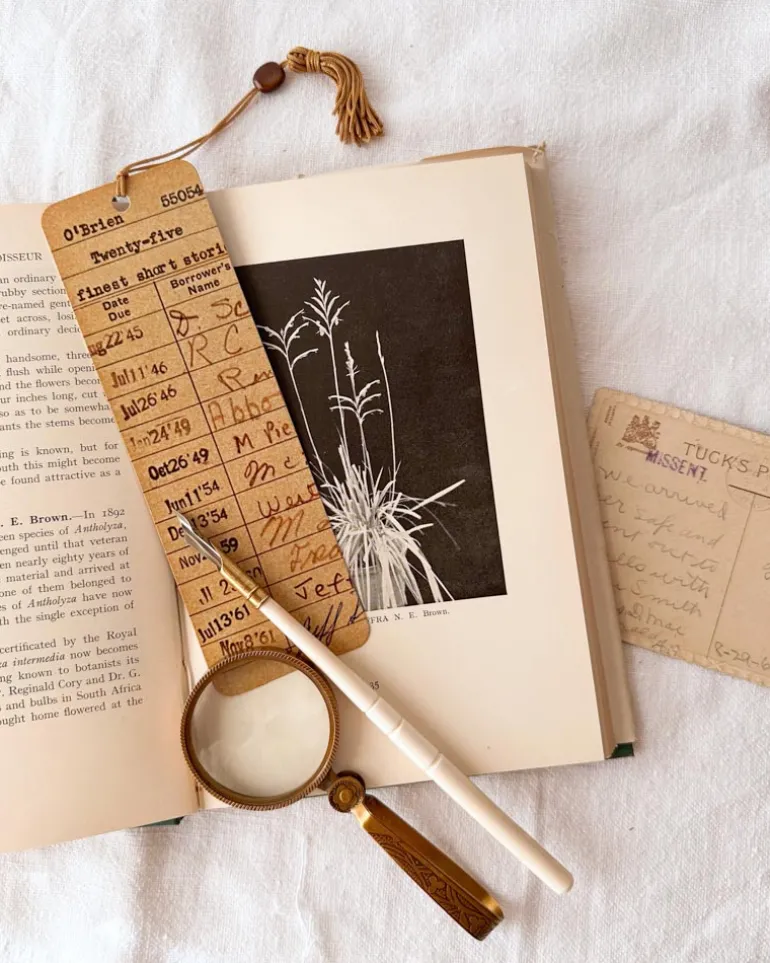 O'Brien 55054
Twenty-five
finest short stori
Date Due
Borrower's Name
ug22'45
Jul11'46
R C
Jul26'46
Jan24'49
Abbo
Oct26'49
M Pie
Jun11'54
Mc
De 13'54
West
Nov 59
Jul13'61
Jeff
Nov8'61
Jeff
OISSEUR
an ordinary
ubby section
re-named gent
et across,
ordinary
handsome, three
flush while open
nd the flowers becom
ur inches long, cut
so as to be somewha
ants the stems become
ing is known, but for
outh this might become
e found attractive as a
. E. Brown.—In 1892
een species of Antholyza,
enged until that veteran
en nearly eighty years of
material and arrived at
one of them belonged to
es of Antholyza have now
th the single exception of
certificated by the Royal
za intermedia now becomes
ing known to botanists its
. Reginald Cory and Dr. G.
s and bulbs in South Africa
ought home flowered at the
FRA N. E. Brown.
85
TUCK'S P
MISSENT.
we arrived
safe and
ent out to
llo with
Smith
8-29-6